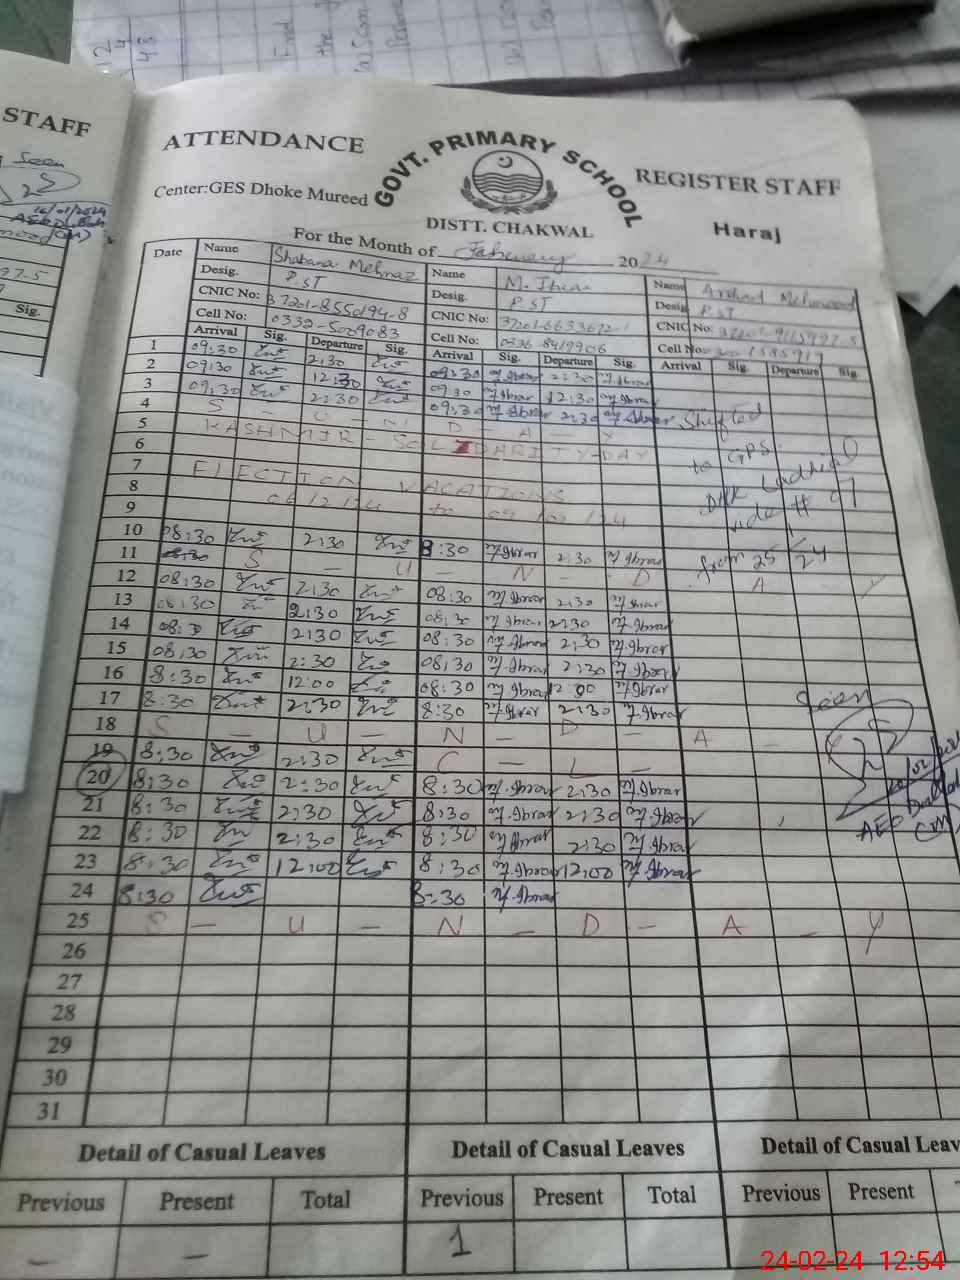 STAFF
Seen
16/01/2024
Sig.
ATTENDANCE
GOVT. PRIMARY SCHOOL
REGISTER STAFF
Center:GES Dhoke Mureed
DISTT. CHAKWAL
Haraj
For the Month of February 2024
Date Name Shabana Mehnaz Name M. Ibrar Name Arshad Mehmood
Desig. P.ST Desig. P.ST Desig. P.ST
CNIC No: CNIC No: 37201-6633672-1 CNIC No:
Cell No: 0332-5009083 Cell No: 0336-8419906 Cell No:
Arrival Sig. Departure Sig. Arrival Sig. Departure Sig. Arrival Sig. Departure Sig.
1 09:30 2:30 09:30 M.Ibrar 2:30 M.Ibrar
2 09:30 12:30 09:30 M.Ibrar 12:30 M.Ibrar
3 09:30 2:30 09:30 M.Ibrar 2:30 M.Ibrar Shifted
4 S - U - N - D - A - Y
5 KASHMIR - SOLIDARITY - DAY to GPS
6
7 ELECTION VACATIONS vide #
8 06/2/24 to 09/02/24
9
from 25/1/24
10 08:30 2:30 8:30 M.Ibrar 2:30 M.Ibrar
11 08:30 S - U - N - D - A - Y
12 08:30 2:30 08:30 M.Ibrar 2:30 M.Ibrar
13 08:30 2:30 08:30 M.Ibrar 2:30 M.Ibrar
14 08:30 2:30 08:30 M.Ibrar 2:30 M.Ibrar
15 08:30 2:30 08:30 M.Ibrar 2:30 M.Ibrar
16 8:30 12:00 08:30 M.Ibrar 12:00 M.Ibrar
17 8:30 2:30 8:30 M.Ibrar 2:30 M.Ibrar Seen
18 S - U - N - D - A - Y
19 8:30 2:30 C - L -
20 8:30 2:30 8:30 M.Ibrar 2:30 M.Ibrar
21 8:30 2:30 8:30 M.Ibrar 2:30 M.Ibrar
22 8:30 2:30 8:30 M.Ibrar 2:30 M.Ibrar AEO
23 8:30 12:00 8:30 M.Ibrar 12:00 M.Ibrar
24 8:30 8:30 M.Ibrar
25 S - U - N - D - A - Y
26
27
28
29
30
31
Detail of Casual Leaves Detail of Casual Leaves Detail of Casual Leav
Previous Present Total Previous Present Total Previous Present
- - 1
24-02-24 12:54